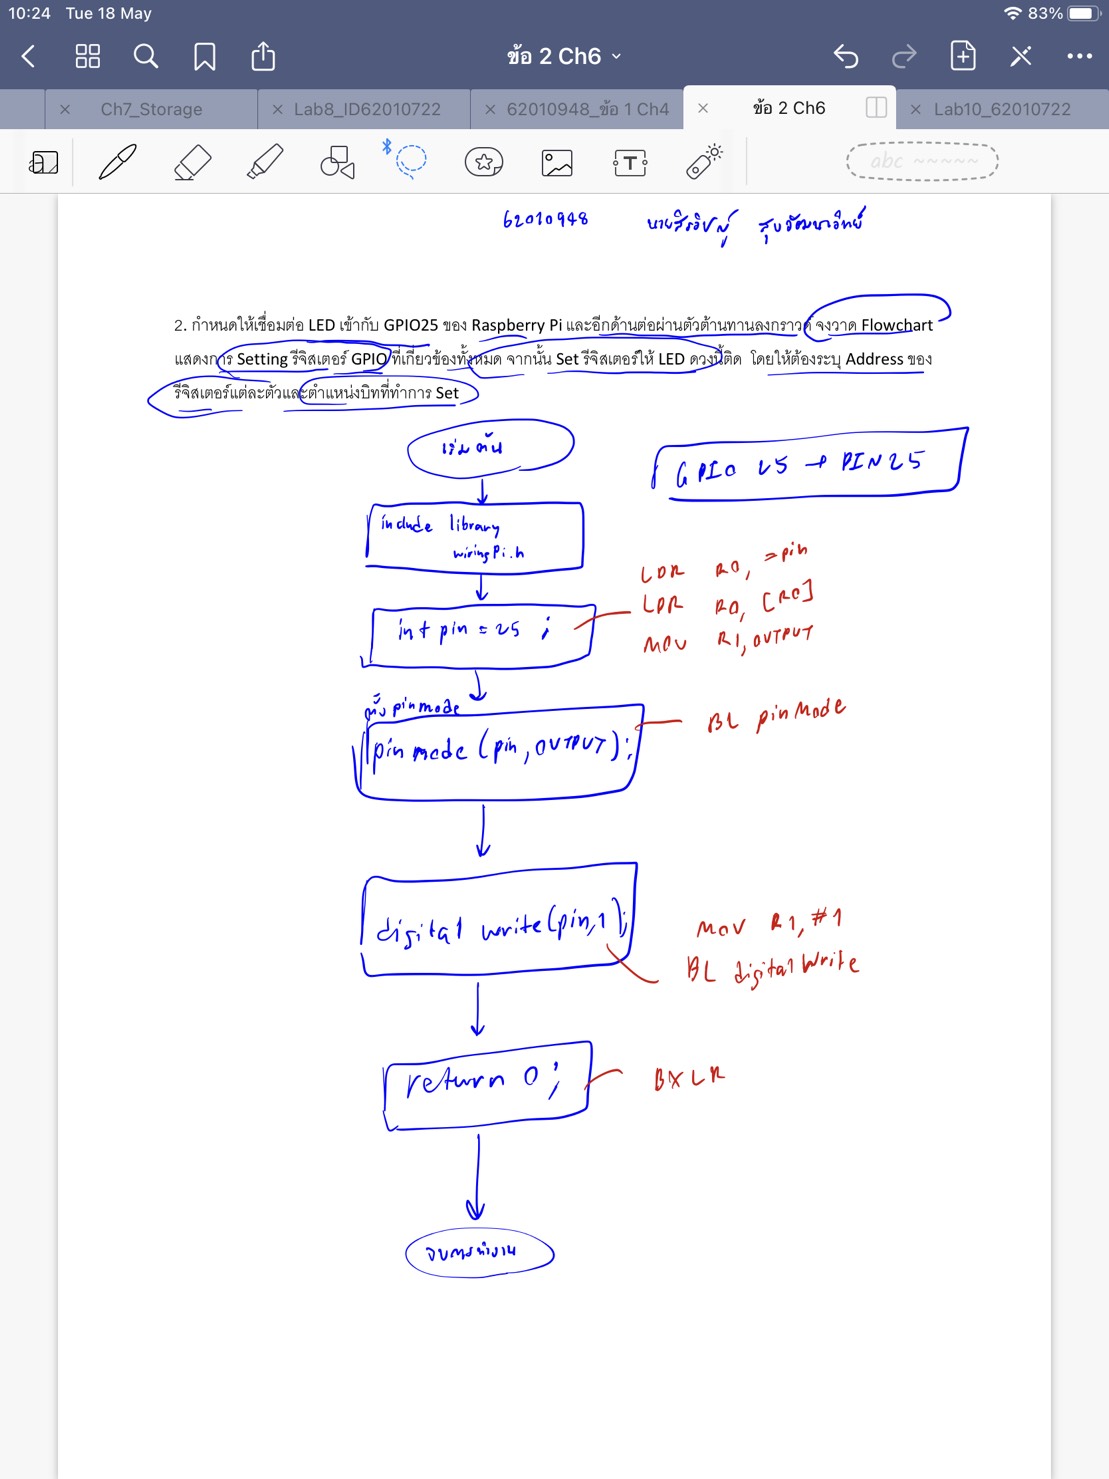 10:24 Tue 18 May 83%
ข้อ 2 Ch6
Ch7_Storage
Lab8_ID62010722
62010948_ข้อ 1 Ch4
ข้อ 2 Ch6
Lab10_62010722
abc ~~~~~
62010948 นาย
2. กำหนดให้เชื่อมต่อ LED เข้ากับ GPIO25 ของ Raspberry Pi และอีกด้านต่อผ่านตัวต้านทานลงกราวด์ จงวาด Flowchart
แสดงการ Setting รีจิสเตอร์ GPIO ที่เกี่ยวข้องทั้งหมด จากนั้น Set รีจิสเตอร์ให้ LED ดวงนี้ติด โดยให้ต้องระบุ Address ของ
รีจิสเตอร์แต่ละตัวและตำแหน่งบิทที่ทำการ Set
เริ่มต้น
GPIO 25 → PIN 25
include library
wiringPi.h
LDR R0, =pin
LDR R0, [R0]
MOV R1, OUTPUT
int pin = 25 ;
ตั้ง pinmode
pinmode (pin, OUTPUT);
BL pinMode
digital write(pin,1);
MOV R1, #1
BL digitalWrite
return 0 ;
BX LR
จบการทำงาน